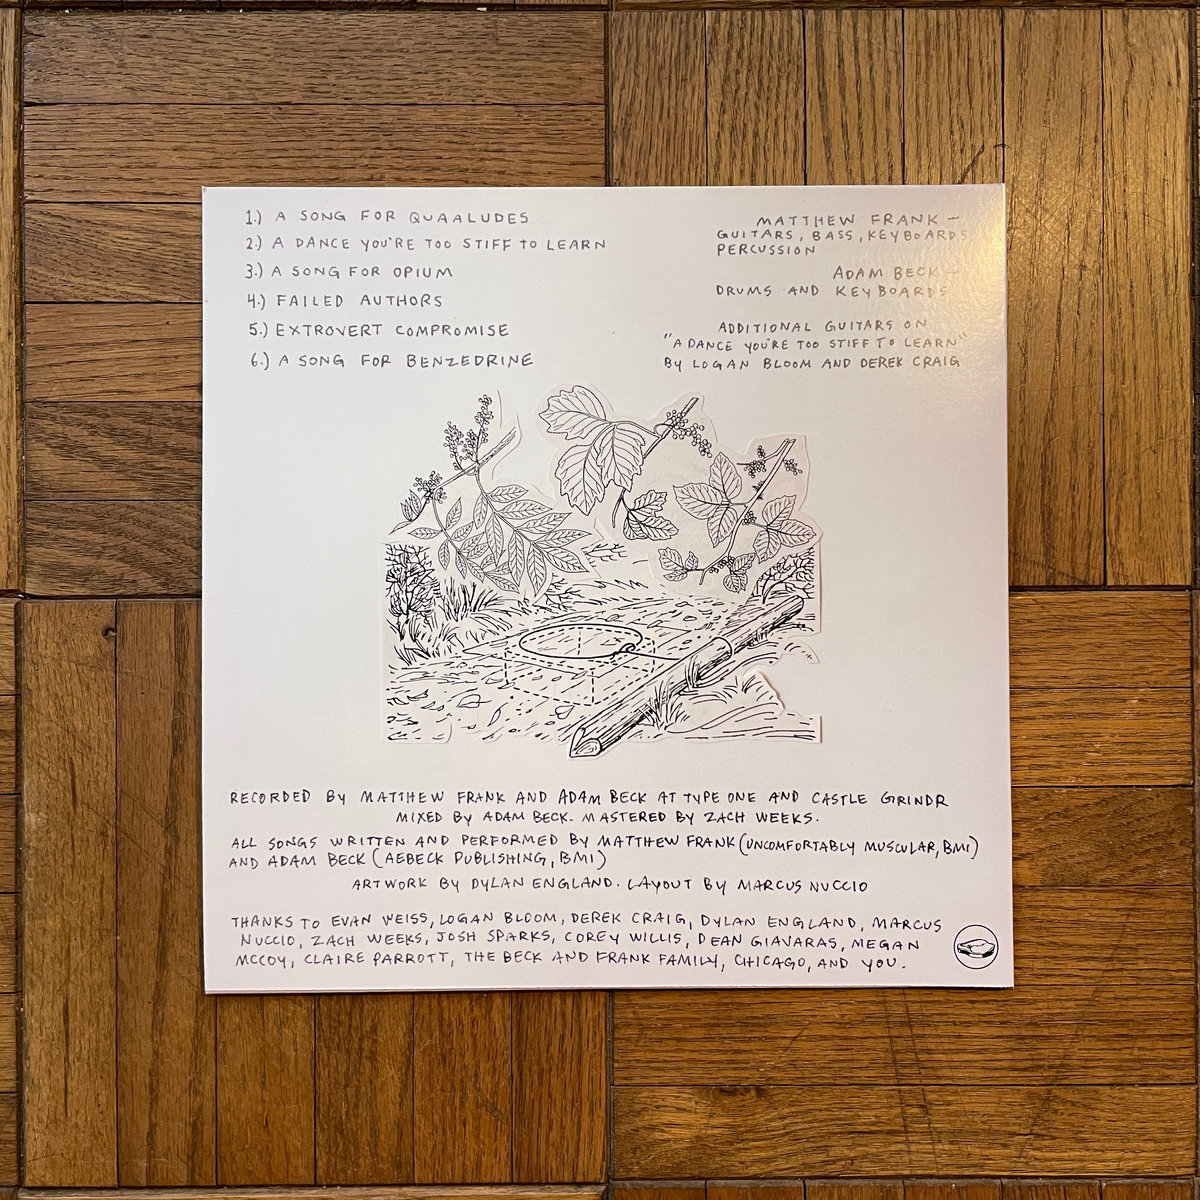 1.) A SONG FOR QUAALUDES
2.) A DANCE YOU'RE TOO STIFF TO LEARN
3.) A SONG FOR OPIUM
4.) FAILED AUTHORS
5.) EXTROVERT COMPROMISE
6.) A SONG FOR BENZEDRINE
MATTHEW FRANK –
GUITARS, BASS, KEYBOARDS
PERCUSSION
ADAM BECK –
DRUMS AND KEYBOARDS
ADDITIONAL GUITARS ON
"A DANCE YOU'RE TOO STIFF TO LEARN"
BY LOGAN BLOOM AND DEREK CRAIG
RECORDED BY MATTHEW FRANK AND ADAM BECK AT TYPE ONE AND CASTLE GRINDR
MIXED BY ADAM BECK. MASTERED BY ZACH WEEKS.
ALL SONGS WRITTEN AND PERFORMED BY MATTHEW FRANK (UNCOMFORTABLY MUSCULAR, BMI)
AND ADAM BECK (AEBECK PUBLISHING, BMI)
ARTWORK BY DYLAN ENGLAND. LAYOUT BY MARCUS NUCCIO
THANKS TO EVAN WEISS, LOGAN BLOOM, DEREK CRAIG, DYLAN ENGLAND, MARCUS
NUCCIO, ZACH WEEKS, JOSH SPARKS, COREY WILLIS, DEAN GIAVARAS, MEGAN
MCCOY, CLAIRE PARROTT, THE BECK AND FRANK FAMILY, CHICAGO, AND YOU.